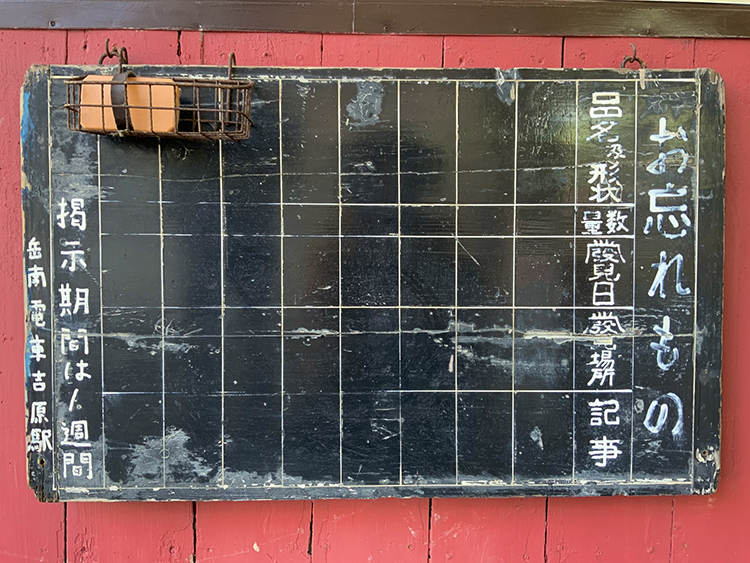 お忘れもの
品名及形状
数量
発見日
発見場所
記事
掲示期間は1週間
岳南電車吉原駅